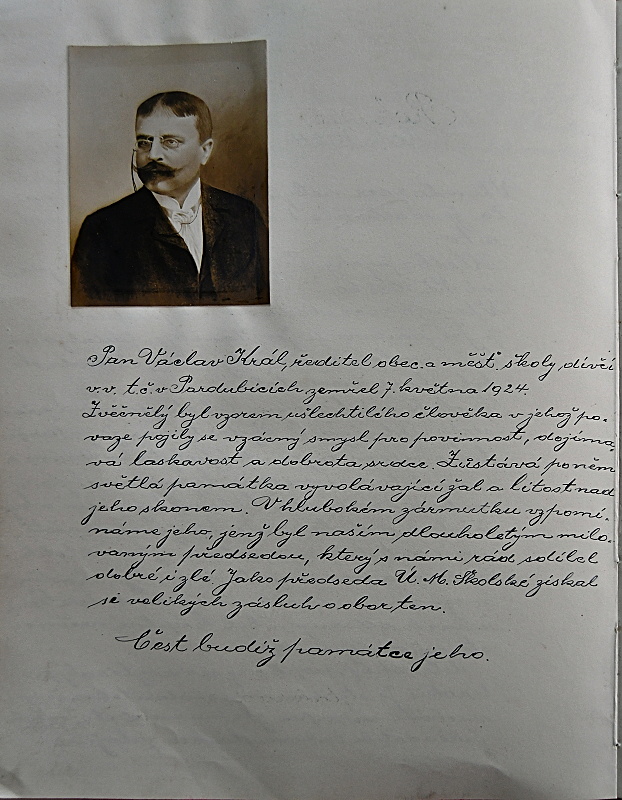 Pan Václav Král, ředitel obec. a měšť. školy dívčí
v.v. t.č. v Pardubicích zemřel 7. května 1924.
Zvěčnělý byl vzorem ušlechtilého člověka v jehož po-
vaze pojily se vzácný smysl pro povinnost, dojíma-
vá laskavost a dobrota srdce. Zůstává po něm
světlá památka vyvolávající žal a lítost nad
jeho skonem. V hlubokém zármutku vzpomí-
náme jeho, jenž byl naším dlouholetým milo-
vaným předsedou, který s námi rád sdílel
dobré i zlé. Jako předseda Ú. M. Školské získal
si velikých zásluh o obor ten.
Čest budiž památce jeho.